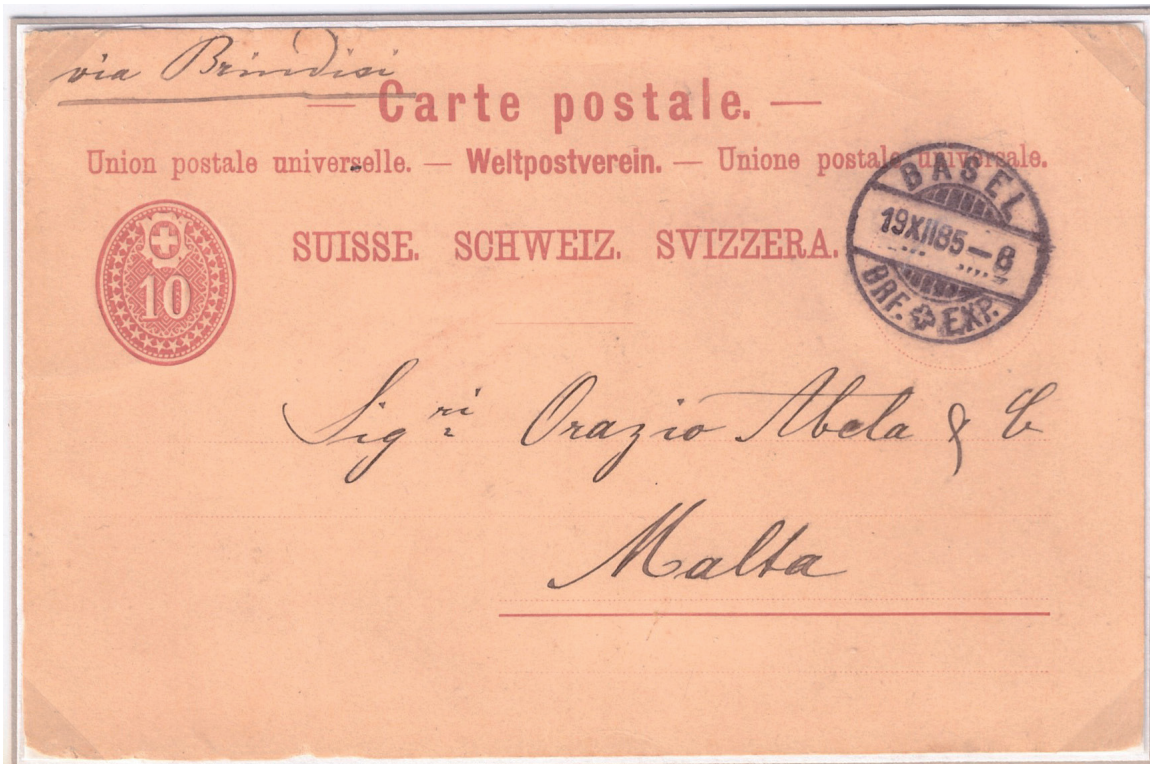 via Brindisi
— Carte postale. —
Union postale universelle. — Weltpostverein. — Unione postale universale.
SUISSE. SCHWEIZ. SVIZZERA.
10
BASEL
19XII85–8
BRF. EXP.
Sigri Orazio Abela & C
Malta